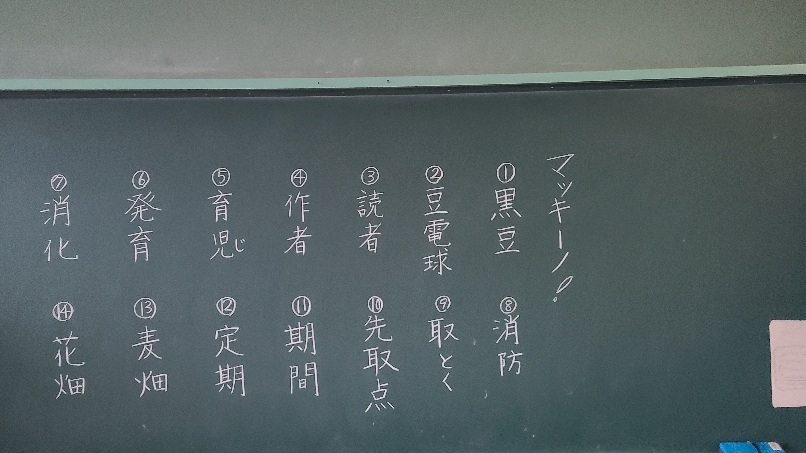 マッキーノ!
①黒豆
②豆電球
③読者
④作者
⑤育児じ
⑥発育
⑦消化
⑧消防
⑨取とく
⑩先取点
⑪期間
⑫定期
⑬麦畑
⑭花畑